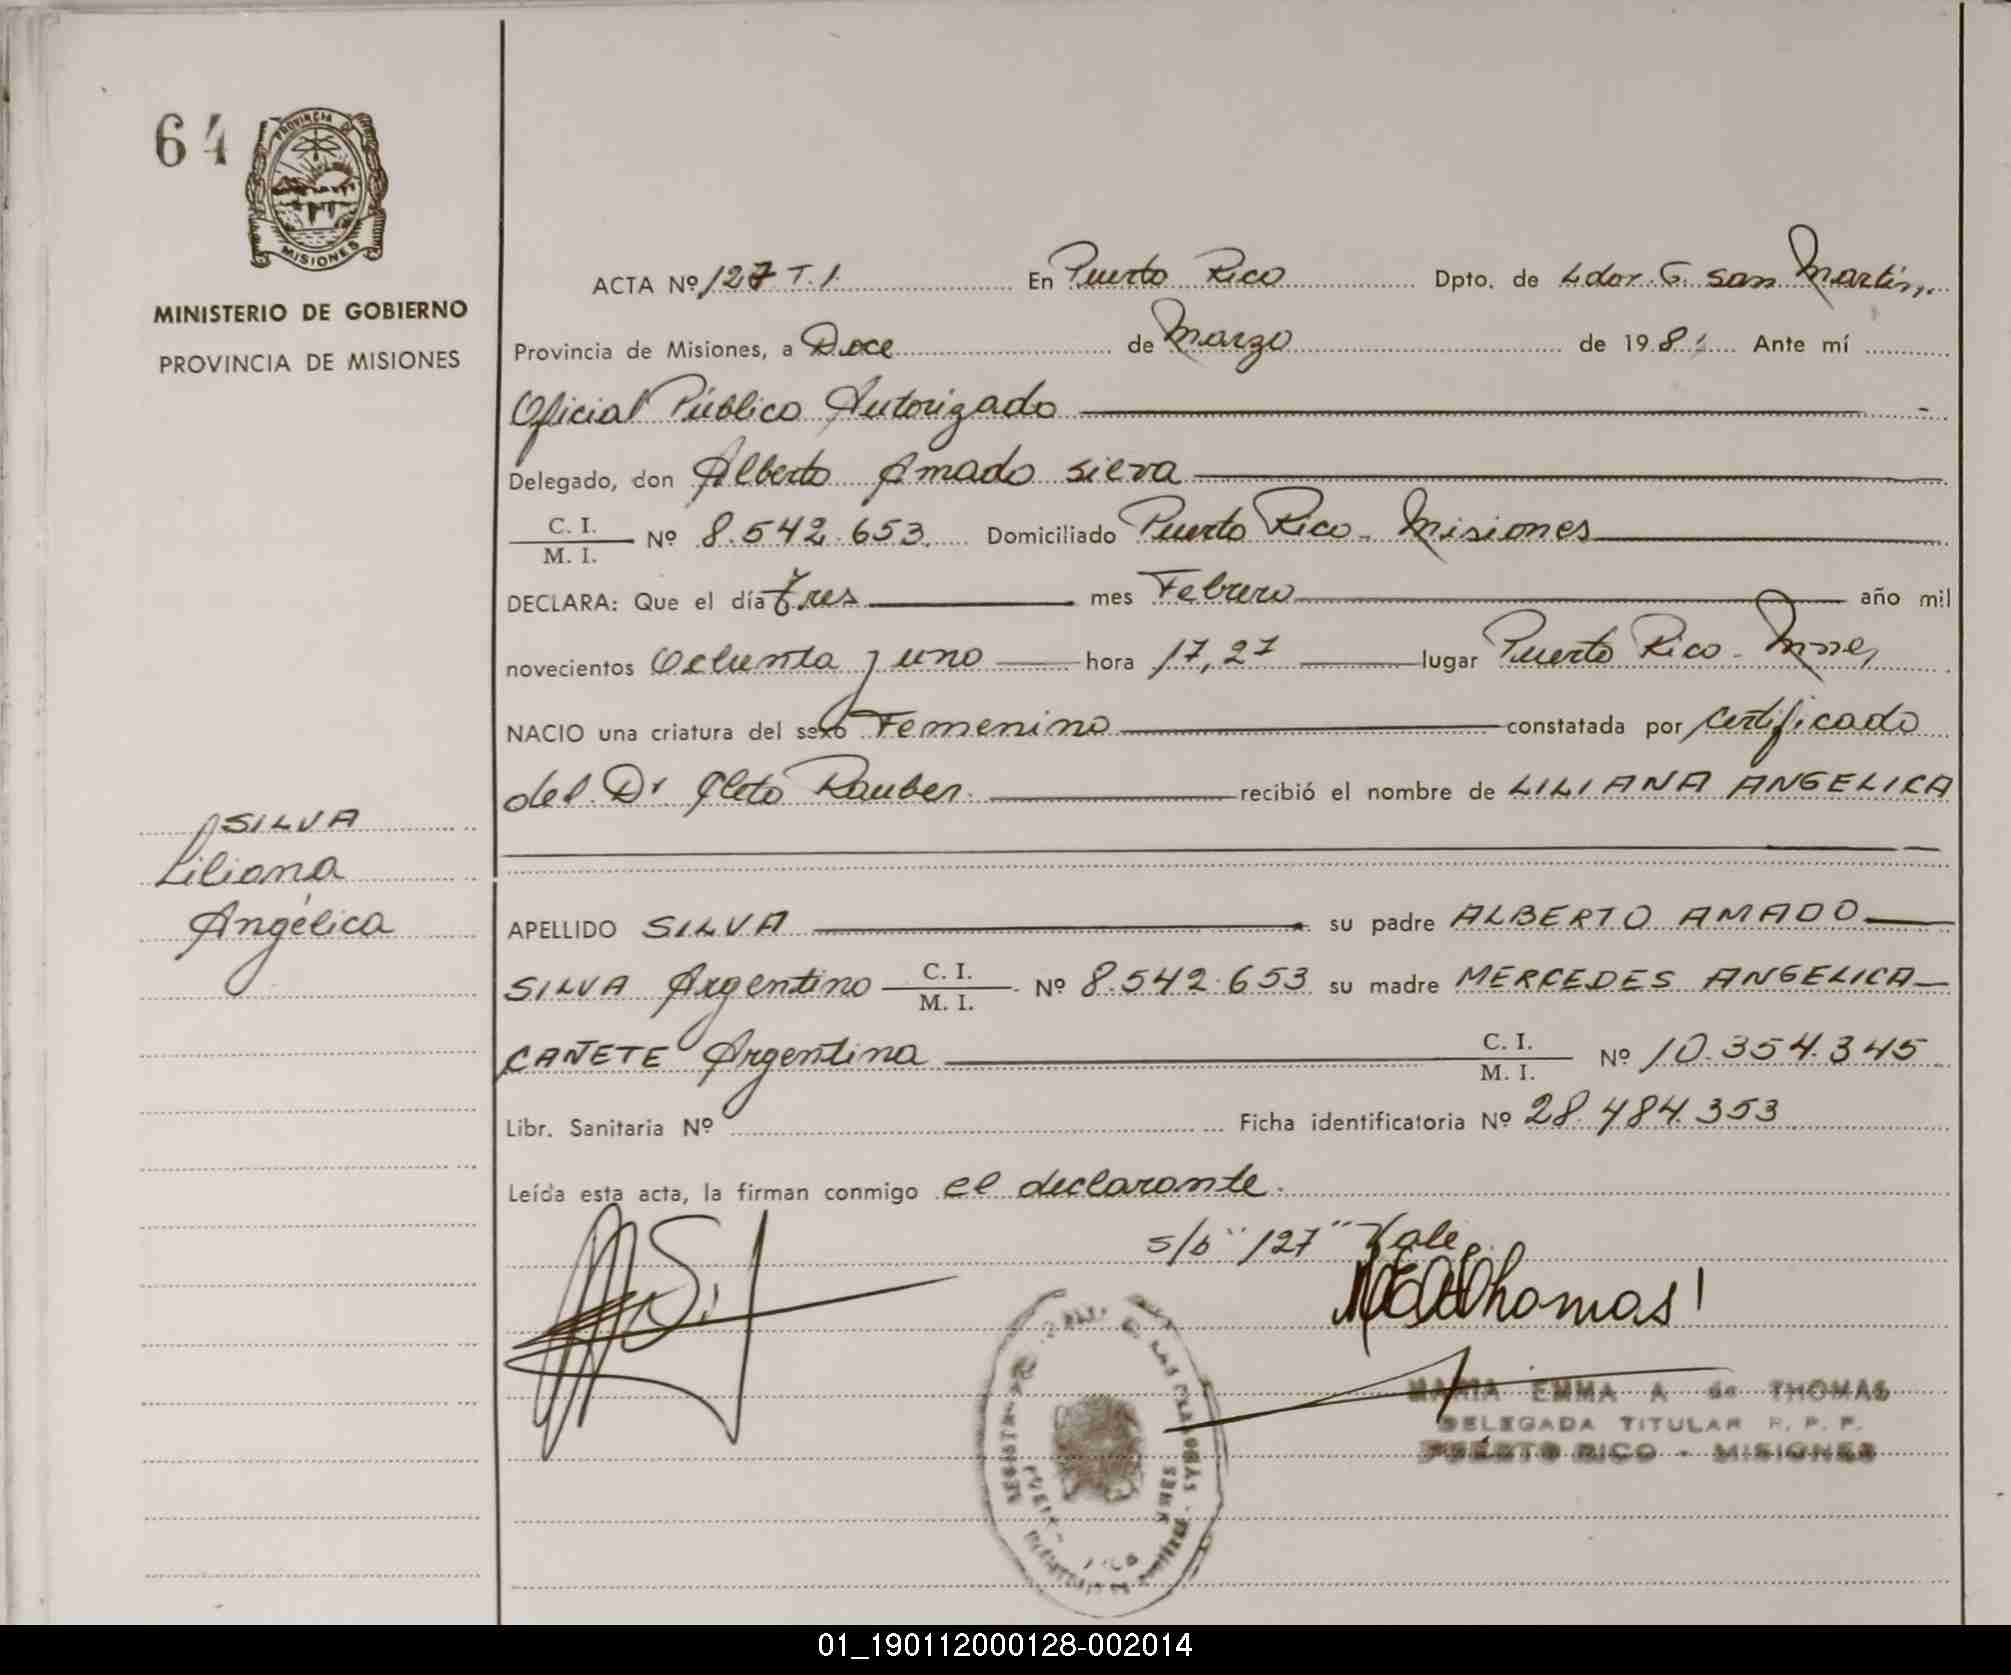 64
PROVINCIA DE
MISIONES
MINISTERIO DE GOBIERNO
PROVINCIA DE MISIONES
ACTA Nº 127 T.1. En Puerto Rico Dpto. de Ldor. G. San Martín,
Provincia de Misiones, a Doce de Marzo de 1981 Ante mí
Oficial Público Autorizado
Delegado, don Alberto Amado Silva
C. I. / M. I. Nº 8.542.653. Domiciliado Puerto Rico - Misiones
DECLARA: Que el día Tres mes Febrero año mil
novecientos Ochenta y uno hora 17,27 lugar Puerto Rico - Mnes,
NACIO una criatura del sexo Femenino constatada por certificado
del Dr Cleto Rauber. recibió el nombre de LILIANA ANGELICA
SILVA
Liliana
Angélica
APELLIDO SILVA su padre ALBERTO AMADO
SILVA Argentino C. I. / M. I. Nº 8.542.653 su madre MERCEDES ANGELICA
CAÑETE Argentina C. I. / M. I. Nº 10.354.345
Libr. Sanitaria Nº Ficha identificatoria Nº 28.484.353
Leída esta acta, la firman conmigo el declarante.
s/b "127" Vale.
Thomas
MARIA EMMA A de THOMAS
DELEGADA TITULAR R. P. P.
PUERTO RICO - MISIONES
01_190112000128-002014